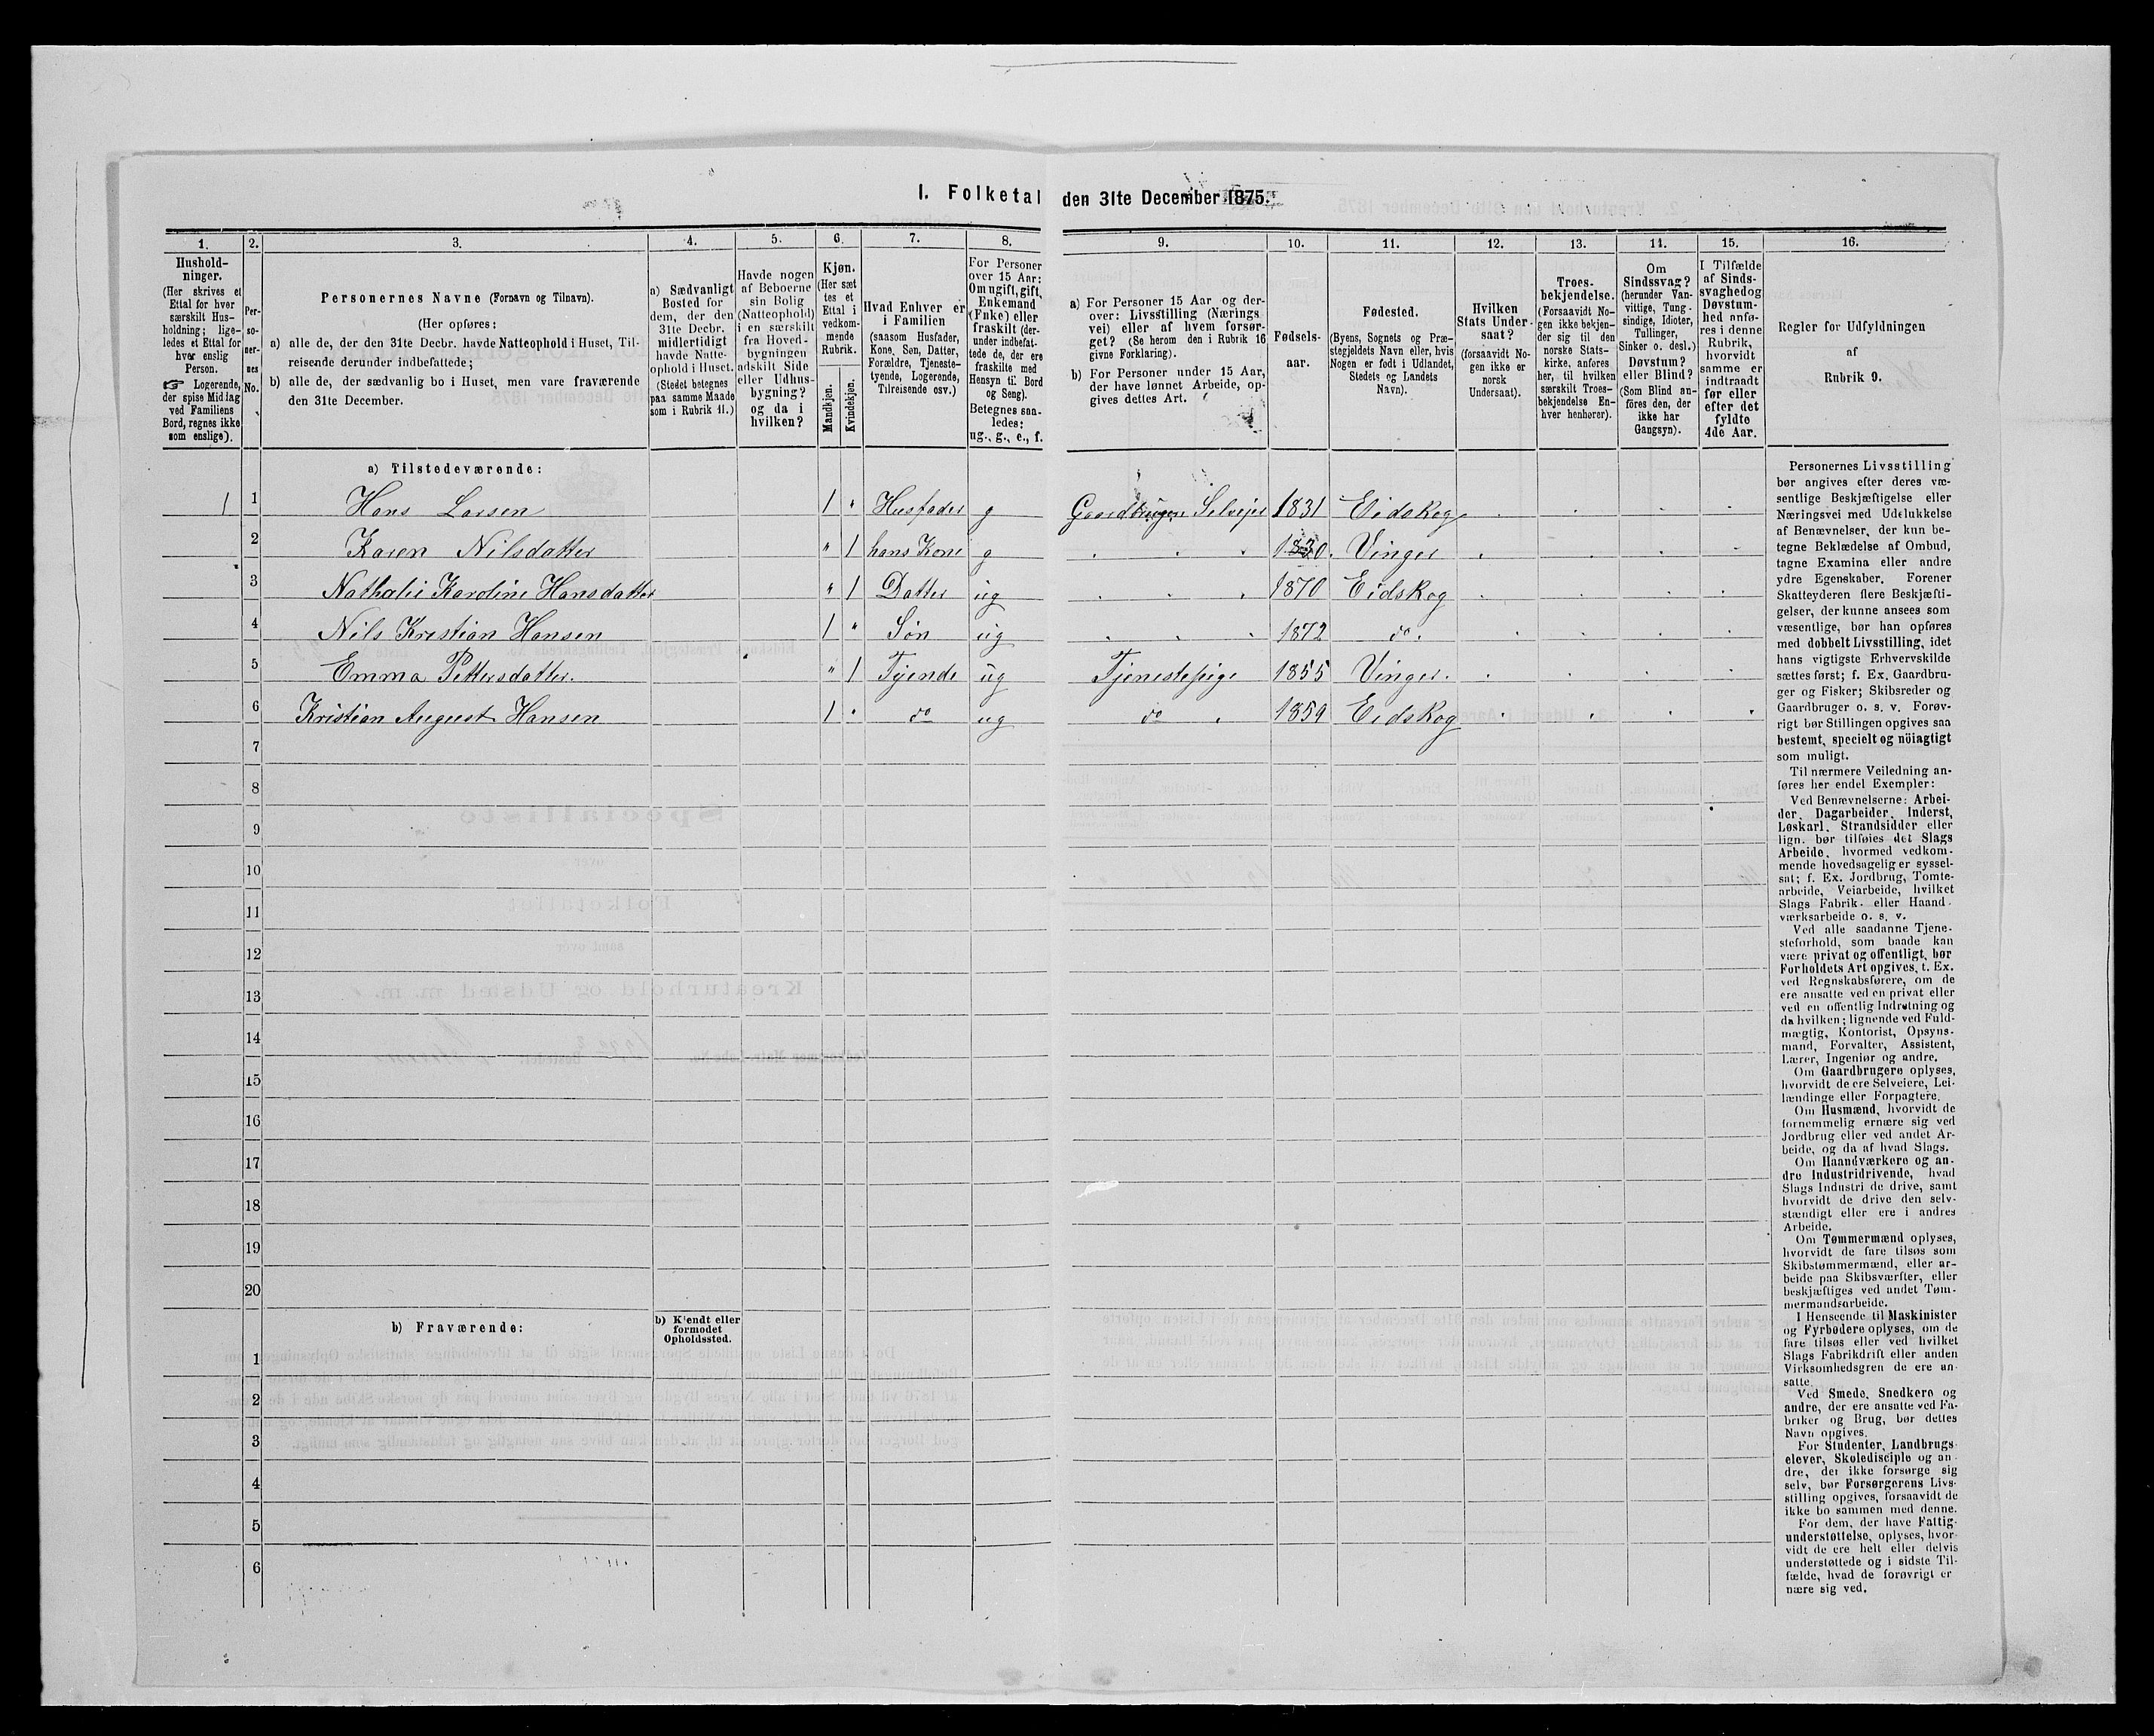 I. Folketal den 31te December 1875.
1. 2. 3. 4. 5. 6. 7. 8. 9. 10. 11. 12. 13. 14. 15. 16.
Hushold-
ninger.
(Her skrives et
Ettal for hver
særskilt Hus-
holdning; lige-
ledes et Ettal for
hver enslig
Person.
☞ Logerende,
der spise Middag
ved Familiens
Bord, regnes ikke
som enslige).
Per-
so-
ner-
nes
No.
Personernes Navne (Fornavn og Tilnavn).
(Her opføres:
a) alle de, der den 31te Decbr. havde Natteophold i Huset, Til-
reisende derunder indbefattede;
b) alle de, der sædvanlig bo i Huset, men vare fraværende
den 31te December.
a) Sædvanligt
Bosted for
dem, der den
31te Decbr.
midlertidigt
havde Natte-
ophold i Huset.
(Stedet betegnes
paa samme Maade
som i Rubrik 11.)
Havde nogen
af Beboerne
sin Bolig
(Natteophold)
i en særskilt
fra Hoved-
bygningen
adskilt Side
eller Udhus-
bygning?
og da i
hvilken?
Kjøn.
(Her sæt
tes et
Ettal i
vedkom-
mende
Rubrik.
Mandkjøn.
Kvindekjøn.
Hvad Enhver er
i Familien
(saasom Husfader,
Kone, Søn, Datter,
Forældre, Tjeneste-
tyende, Logerende,
Tilreisende osv.)
For Personer
over 15 Aar:
Om ugift, gift,
Enkemand
(Enke) eller
fraskilt (der-
under indbefat-
tede de, der ere
fraskilte med
Hensyn til Bord
og Seng).
Betegnes saa-
ledes:
ug., g., e., f.
a) For Personer 15 Aar og der-
over: Livsstilling (Nærings
vei) eller af hvem forsør-
get? (Se herom den i Rubrik 16
givne Forklaring).
b) For Personer under 15 Aar,
der have lønnet Arbeide, op-
gives dettes Art.
Fødsels-
aar.
Fødested.
(Byens, Sognets og Præ-
stegjeldets Navn eller, hvis
Nogen er født i Udlandet,
Stedets og Landets
Navn).
Hvilken
Stats Under-
saat?
(forsaavidt No-
gen ikke er
norsk
Undersaat).
Troes-
bekjendelse.
(Forsaavidt No-
gen ikke bekjen-
der sig til den
norske Stats-
kirke, anføres
her, til hvilken
særskilt Troes-
bekjendelse En-
hver henhører).
Om
Sindssvag?
(herunder Van-
vittige, Tung-
sindige, Idioter,
Tullinger,
Sinker o. desl.)
Døvstum?
eller Blind?
(Som Blind an-
føres den, der
ikke har
Gangsyn).
I Tilfælde
af Sinds-
svaghed og
Døvstum-
hed anfø-
res i denne
Rubrik,
hvorvidt
samme er
indtraadt
før eller
efter det
fyldte
4de Aar.
Regler for Udfyldningen
af
Rubrik 9.
a) Tilstedeværende:
1 1 Hans Larsen 1 " Husfader g Gaardbruger Selvejer 1831 Eidskog
2 Karen Nilsdatter " 1 hans Kone g 1830. Vinger
3 Nathalie Karoline Hansdatter " 1 Datter ug 1870 Eidskog
4 Nils Kristian Hansen 1 " Søn ug 1872 do.
5 Emma Pettersdatter. " 1 Tyende ug Tjenestepige 1855 Vinger.
6 Kristian August Hansen 1 " do ug do 1859 Eidskog
7
8
9
10
11
12
13
14
15
16
17
18
19
20
b) Fraværende:
b) Kjendt eller
formodet
Opholdssted.
1
2
3
4
5
6
Personernes Livsstilling
bør angives efter deres væ-
sentlige Beskjæftigelse eller
Næringsvei med Udelukkelse
af Benævnelser, der kun be-
tegne Beklædelse af Ombud,
tagne Examina eller andre
ydre Egenskaber. Forener
Skatteyderen flere Beskjæfti-
gelser, der kunne ansees som
væsentlige, bør han opføres
med dobbelt Livsstilling, idet
hans vigtigste Erhvervskilde
sættes først; f. Ex. Gaardbru-
ger og Fisker; Skibsreder og
Gaardbruger o. s. v. Forøv-
rigt bør Stillingen opgives saa
bestemt, specielt og nöiagtigt
som muligt.
Til nærmere Veiledning an-
føres her endel Exempler:
Ved Benævnelserne: Arbei-
der, Dagarbeider, Inderst,
Løskarl, Strandsidder eller
lign. bør tilføies det Slags
Arbeide, hvormed vedkom-
mende hovedsagelig er syssel-
sat; f. Ex. Jordbrug, Tomte-
arbeide, Veiarbeide, hvilket
Slags Fabrik- eller Haand-
værksarbeide o. s. v.
Ved alle saadanne Tjene-
steforhold, som baade kan
være privat og offentligt, bør
Forholdets Art opgives, t. Ex.
ved Regnskabsførere, om de
ere ansatte ved en privat eller
ved en offentlig Indretning og
da hvilken; lignende ved Fuld-
mægtig, Kontorist, Opsyns-
mand, Forvalter, Assistent,
Lærer, Ingeniør og andre.
Om Gaardbrugere oplyses,
hvorvidt de ere Selveiere, Lei-
lændinge eller Forpagtere.
Om Husmænd, hvorvidt de
fornemmelig ernære sig ved
Jordbrug eller ved andet Ar-
beide, og da af hvad Slags.
Om Haandværkere og an-
dre Industridrivende, hvad
Slags Industri de drive, samt
hvorvidt de drive den selv-
stændigt eller ere i andres
Arbeide.
Om Tømmermænd oplyses,
hvorvidt de fare tilsøs som
Skibstømmermænd, eller ar-
beide paa Skibsværfter, eller
beskjæftiges ved andet Tøm-
mermandsarbeide.
I Henseende til Maskinister
og Fyrbødere oplyses, om de
fare tilsøs eller ved hvilket
Slags Fabrikdrift eller anden
Virksomhedsgren de ere an-
satte.
Ved Smede, Snedkere og
andre, der ere ansatte ved Fa-
briker og Brug, bør dettes
Navn opgives.
For Studenter, Landbrugs-
elever, Skoledisciple og an-
dre, der ikke forsørge sig
selv, bør Forsørgerens Livs-
stilling opgives, forsaavidt de
ikke bo sammen med denne.
For dem, der have Fattig-
understøttelse, oplyses, hvor-
vidt de ere helt eller delvis
understøttede og i sidste Til-
fælde, hvad de forøvrigt er
nære sig ved.